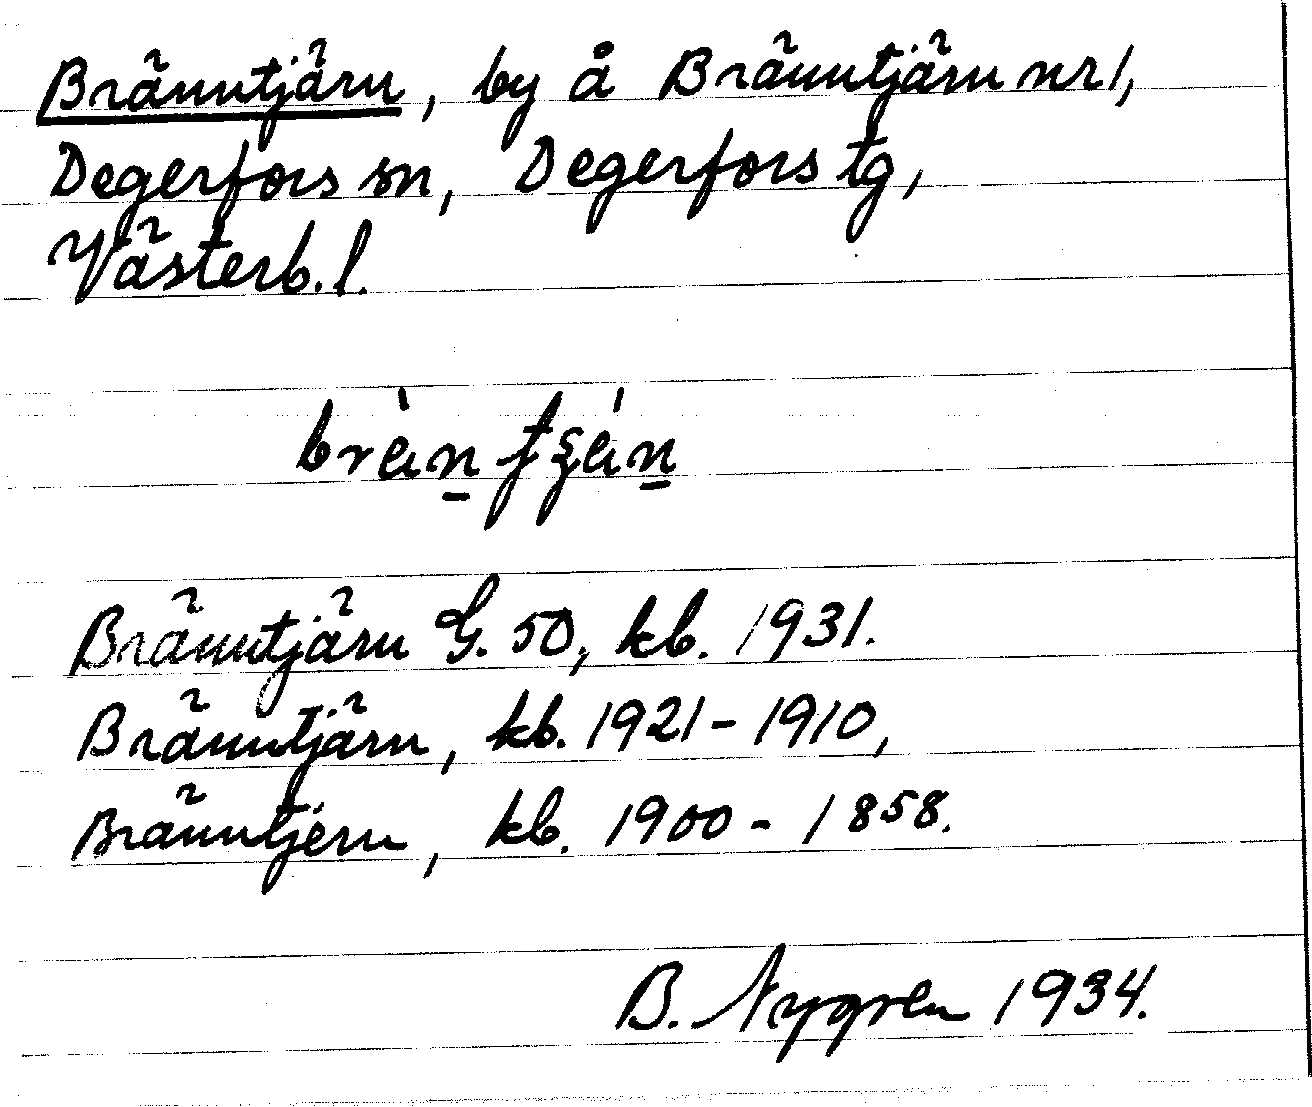 Bränntjärn, by å Bränntjärn nr 1,
Degerfors sn, Degerfors tg,
Västerb. l.
Bränntjärn G. 50, kb. 1931.
Bränntjärn, kb. 1921-1910,
Bränntjern, kb. 1900-1858.
B. Nygren 1934.